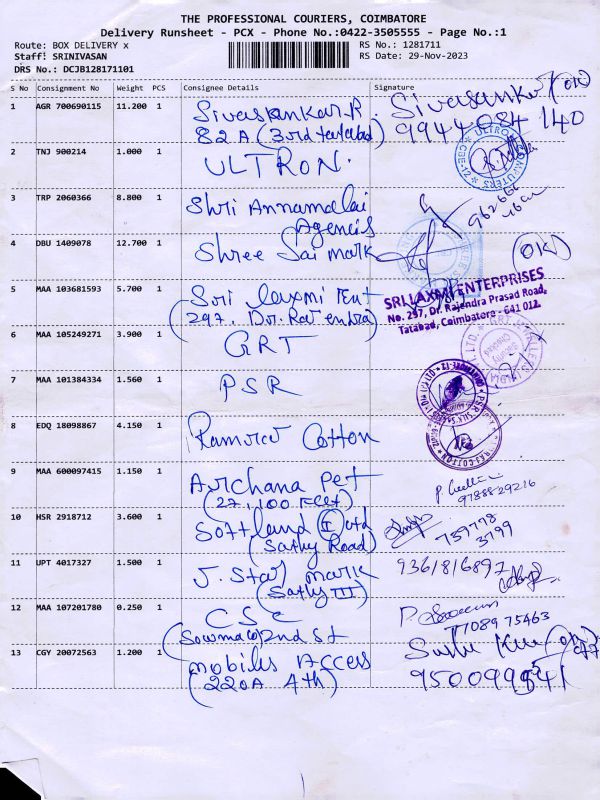 THE PROFESSIONAL COURIERS, COIMBATORE
Delivery Runsheet - PCX - Phone No.:0422-3505555 - Page No.:1
Route: BOX DELIVERY x
RS No.: 1281711
Staff: SRINIVASAN
RS Date: 29-Nov-2023
DRS No.: DCJB128171101
S No Consignment No Weight PCS Consignee Details Signature
1 AGR 700690115 11.200 1 Sivasankar.R
82A (3rd tatabad)
9944084140
2 TNJ 900214 1.000 1 ULTRON.
ULTRON COMPUTERS
CBE-12
3 TRP 2060366 8.800 1 Shri Annamalai
Agencis
4 DBU 1409078 12.700 1 Shree Sai mark
(OK)
5 MAA 103681593 5.700 1 Sri laxmi Ent
(297, Dr. Rajendra)
SRI LAXMI ENTERPRISES
No. 297, Dr. Rajendra Prasad Road,
Tatabad, Coimbatore - 641 012.
6 MAA 105249271 3.900 1 GRT
7 MAA 101384334 1.560 1 PSR
8 EDQ 18098867 4.150 1 Ramraj Cotton
9 MAA 600097415 1.150 1 Archana Pet
(27, 100 Feet)
9788829216
10 HSR 2918712 3.600 1 Softland (I) Ltd
(Sathy Road)
759778
3799
11 UPT 4017327 1.500 1 J. Star mark
(Sathy III)
9361816897
12 MAA 107201780 0.250 1 CSC
(Sowma 2nd St
7708975463
13 CGY 20072563 1.200 1 mobiles Access
(220A 4th)